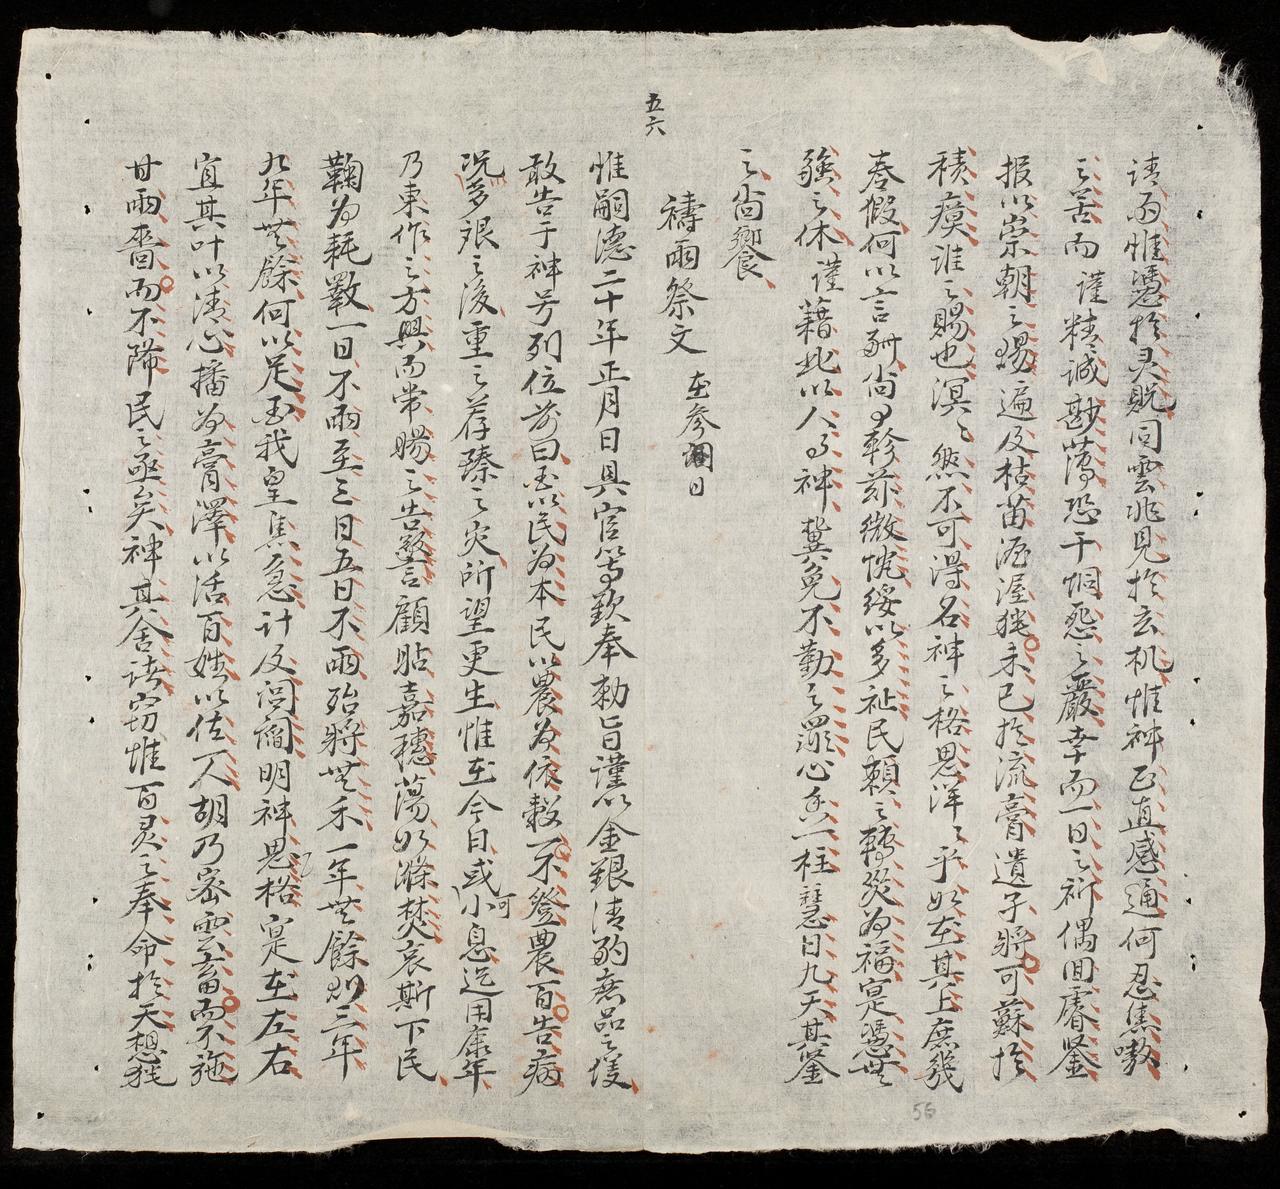 請雨惟憑於灵貺同雲兆見於玄机惟神正直感通何忍焦嗷
之苦而謹精誠尠薄恐干恫怨之嚴幸而一日之祈偶回睿鉴
报以崇朝之賜遍及枯苗渥渥犹未已於流膏遺孑將可蘇於
積瘼誰之賜也溟〻然不可得名神之格思洋〻乎如在其上庶幾
奏假何以言酬尚冀軫茲微悃綏以多祉民賴之轉災為福寔憑無
疆之休謹藉此以人事神冀免不勤之罪心香一柱慧日九天其鉴
之尚饗
禱雨祭文 在參
惟嗣德二十年正月日具官等欽奉勅旨謹以金銀清酌庶品之儀
敢告于神号列位前曰國以民為本民以農為依穀一不登農百告病
况多艰之後重之荐臻之灾所望更生惟在今日或可小息迄用康年
乃東作之方興而常暘之告警言顧玷嘉穗蕩如滌焚哀斯下民
鞠為耗斁一日不雨至三日五日不雨殆將無禾一年無餘則三年
九年無餘何以足國我皇焦急計及閭閻明神思格寔在左右
宜其叶以清心播為膏澤以活百姓以佐一人胡乃密雲畜而不施
甘雨嗇而不沛民之亟矣神其舍諸窃惟百灵之奉命於天想犹
五六
56